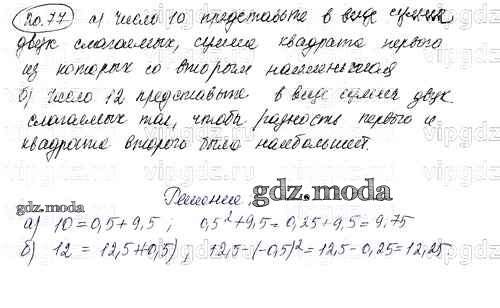 20.77 а) Число 10 представьте в виде суммы
двух слагаемых, сумма квадрата первого
из которых со вторым наименьшая
б) Число 12 представьте в виде суммы двух
слагаемых так, чтобы разность первого и
квадрата второго была наибольшей.
Решение.
gdz.moda
gdz.moda
а) 10 = 0,5 + 9,5 ; 0,5² + 9,5 = 0,25 + 9,5 = 9,75
б) 12 = 12,5 + (-0,5) , 12,5 - (-0,5)² = 12,5 - 0,25 = 12,25